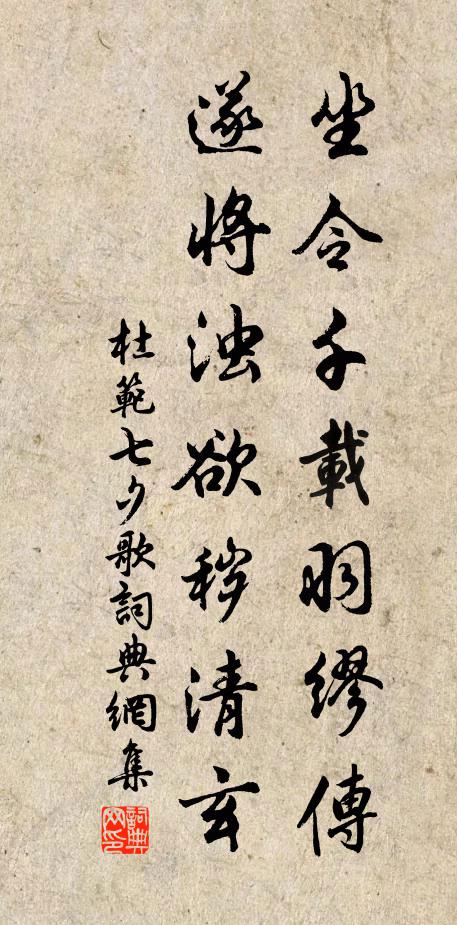 坐令千載羽繆傳
遂將浊欲秽清玄
杜範七夕歌詞典網集
詞典
网印